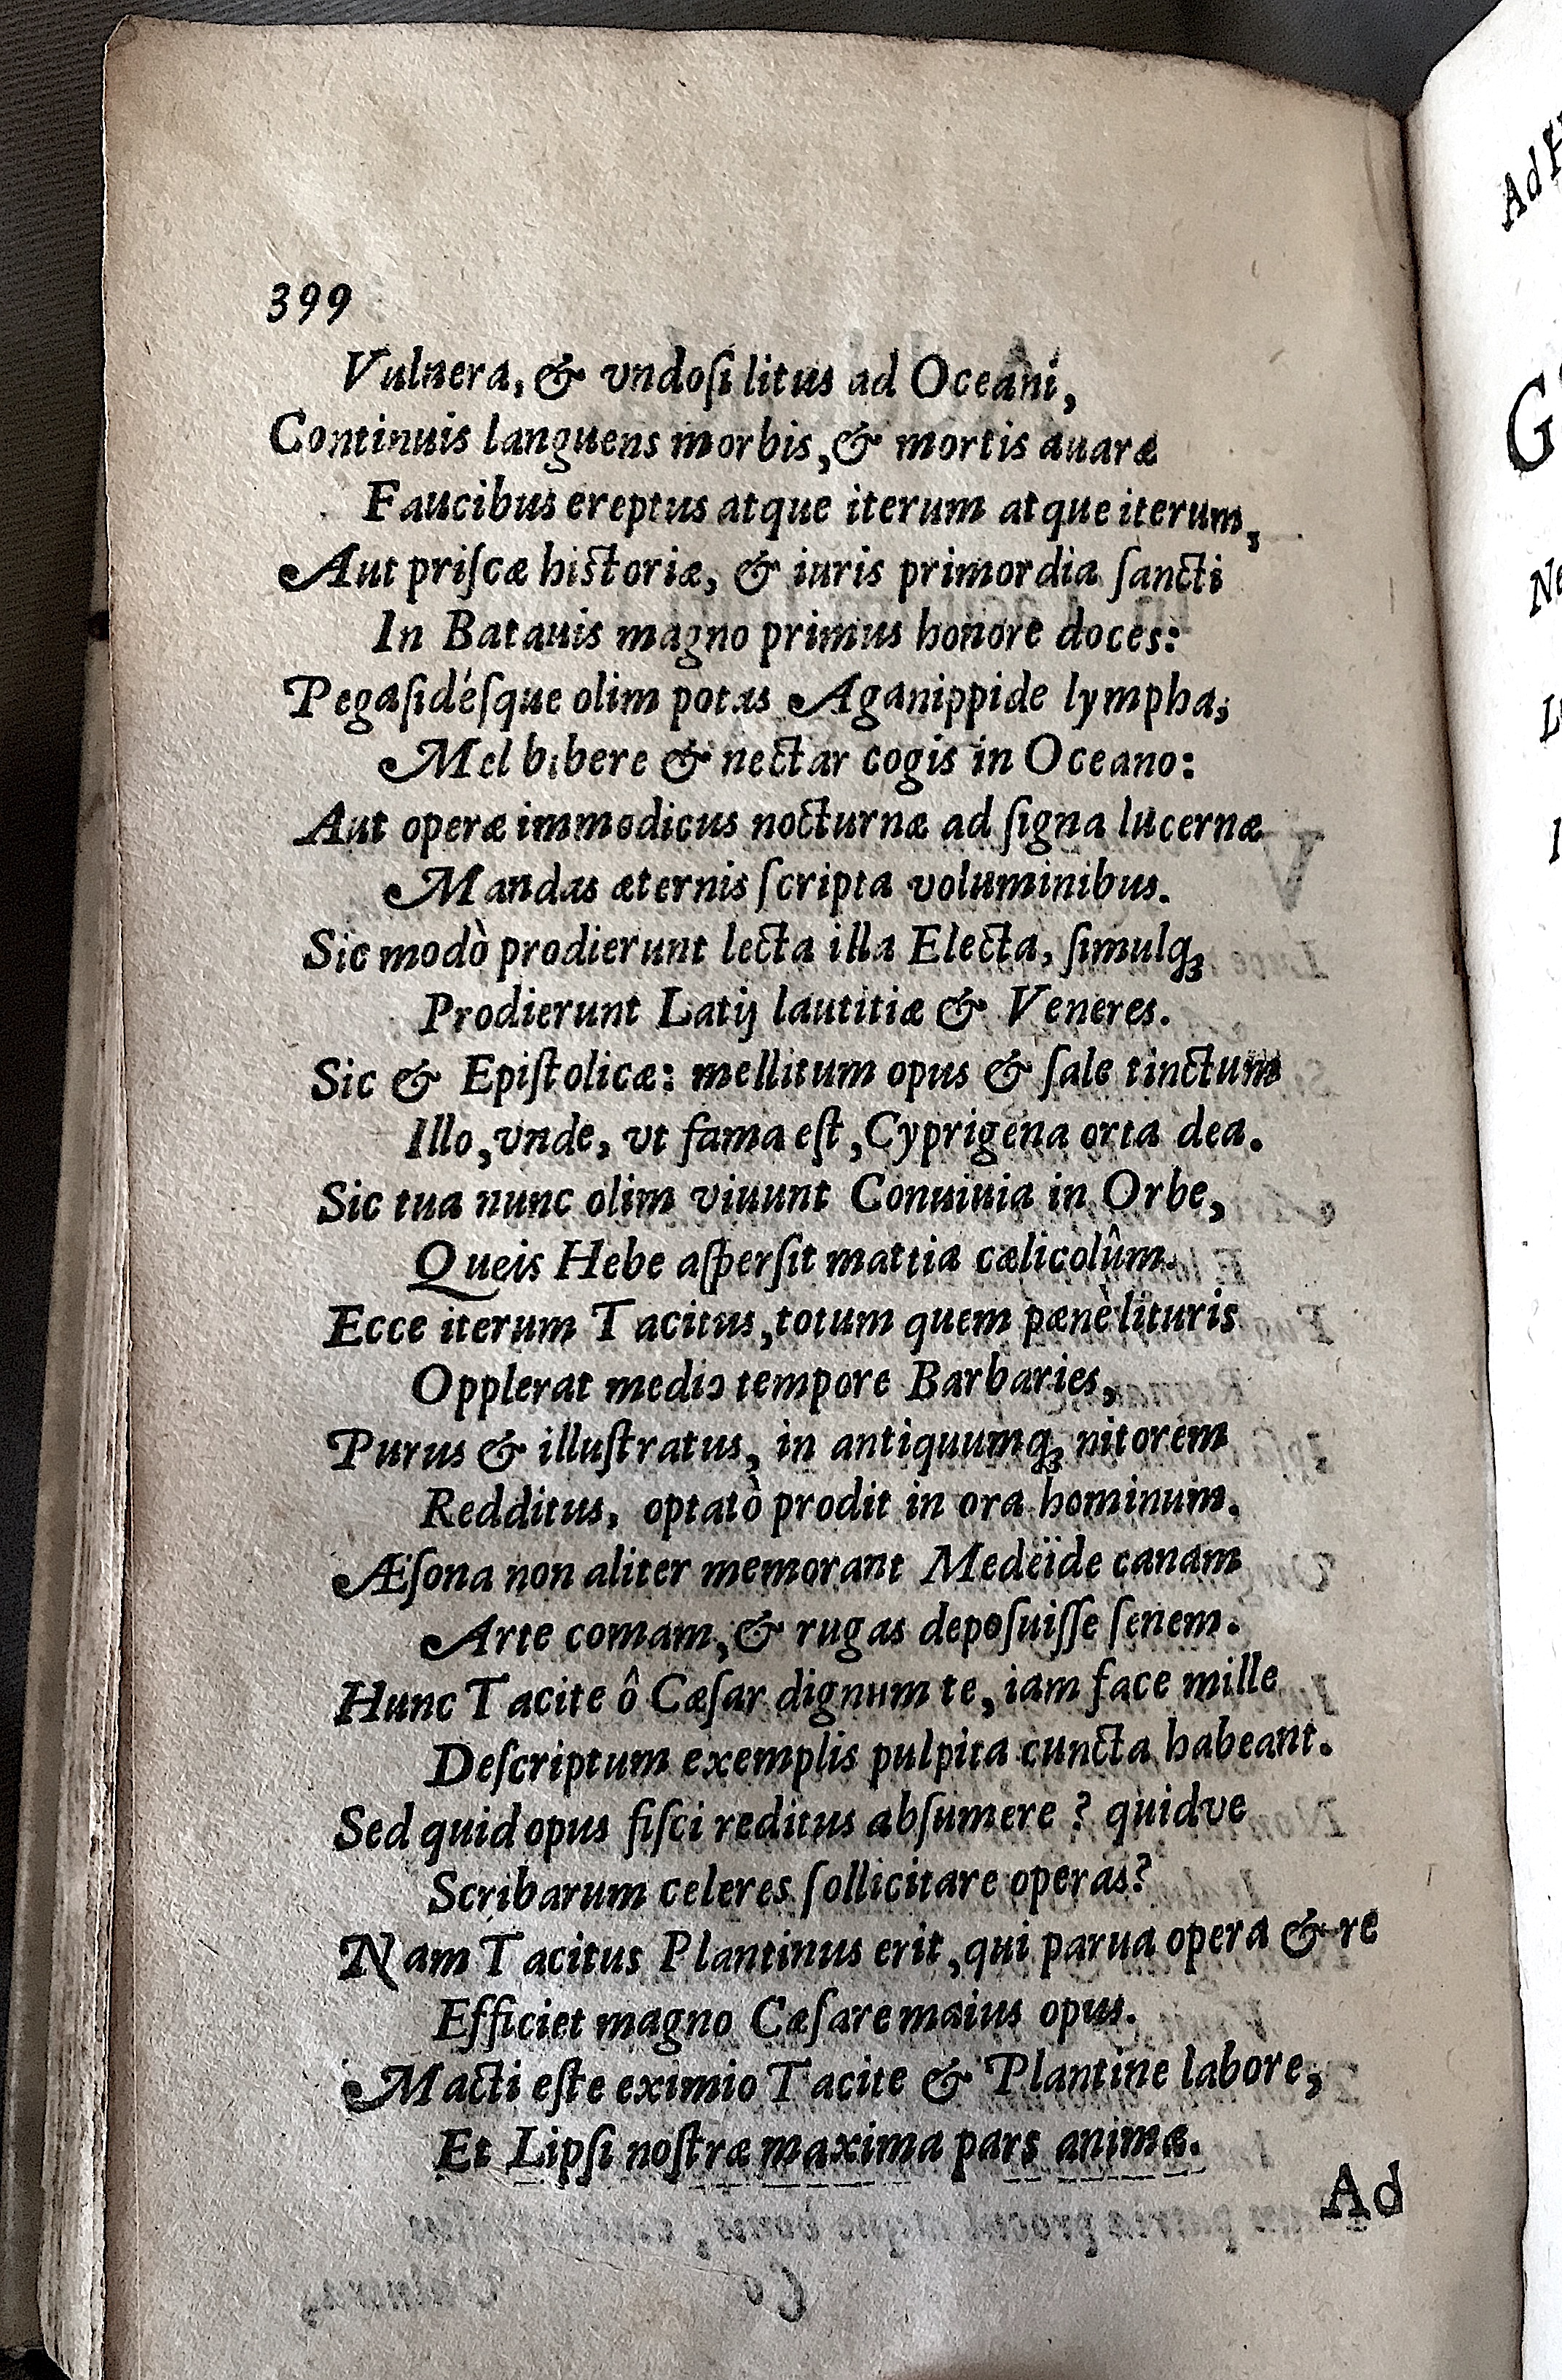 399
Vulnera, & vndoſi litus ad Oceani,
Continuis languens morbis, & mortis auaræ
Faucibus ereptus atque iterum atque iterum,
Aut priſcæ hiſtoriæ, & iuris primordia ſancti
In Batauis magno primus honore doces:
Pegaſidéſque olim potas Aganippide lympha,
Mel bibere & nectar cogis in Oceano:
Aut operæ immodicus nocturnæ ad ſigna lucernæ
Mandas æternis ſcripta voluminibus.
Sic modò prodierunt lecta illa Electa, ſimulq́ꝫ
Prodierunt Latij lautitiæ & Veneres.
Sic & Epiſtolicæ: mellitum opus & ſale tinctum
Illo, vnde, vt fama eſt, Cyprigena orta dea.
Sic tua nunc olim viuunt Conuiuia in Orbe,
Queis Hebe aſperſit mattia cælicolûm.
Ecce iterum Tacitus, totum quem pænè lituris
Opplerat medio tempore Barbaries,
Purus & illuſtratus, in antiquumq́ꝫ nitorem
Redditus, optatò prodit in ora hominum.
Æſona non aliter memorant Medeïde canam
Arte comam, & rugas depoſuiſſe ſenem.
Hunc Tacite ô Cæſar dignum te, iam face mille
Deſcriptum exemplis pulpita cuncta habeant.
Sed quid opus fiſci reditus abſumere? quidve
Scribarum celeres ſollicitare operas?
Nam Tacitus Plantinus erit, qui parua opera & re
Efficiet magno Cæſare maius opus.
Macti eſte eximio Tacite & Plantine labore,
Et Lipſi noſtræ maxima pars animæ.
Ad